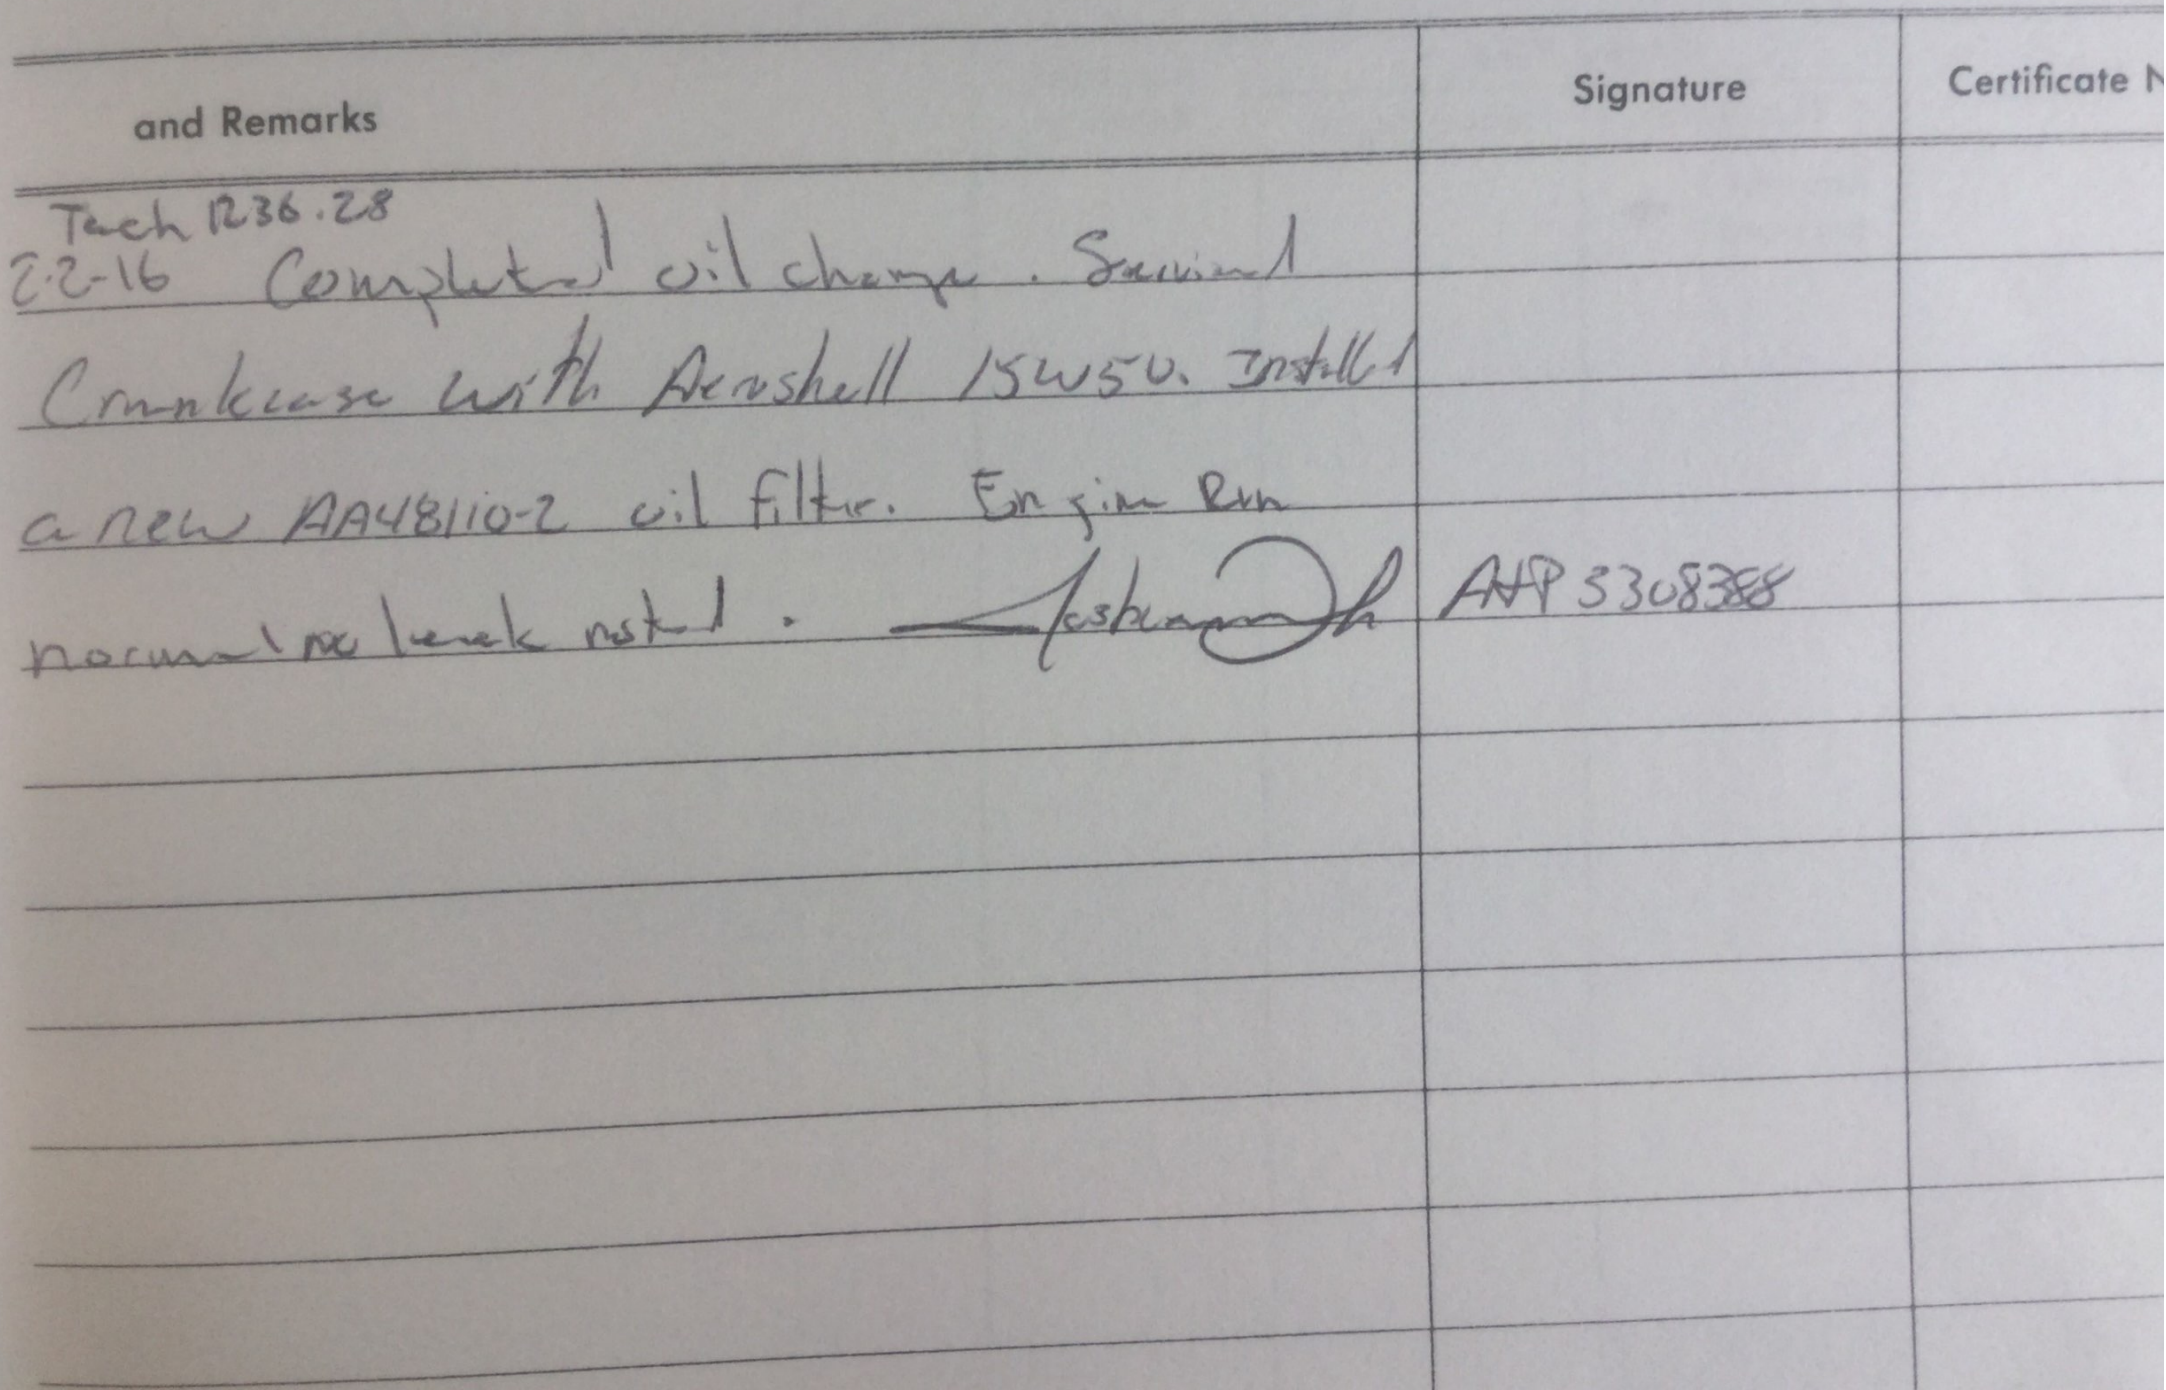 and Remarks Signature Certificate N
Tach 1236.28
2-2-16 Completed oil change. Serviced
Crankcase with Aeroshell 15W50. Installed
a new AA48110-2 oil filter. Engine Run
normal no leak noted. A+P 3308388